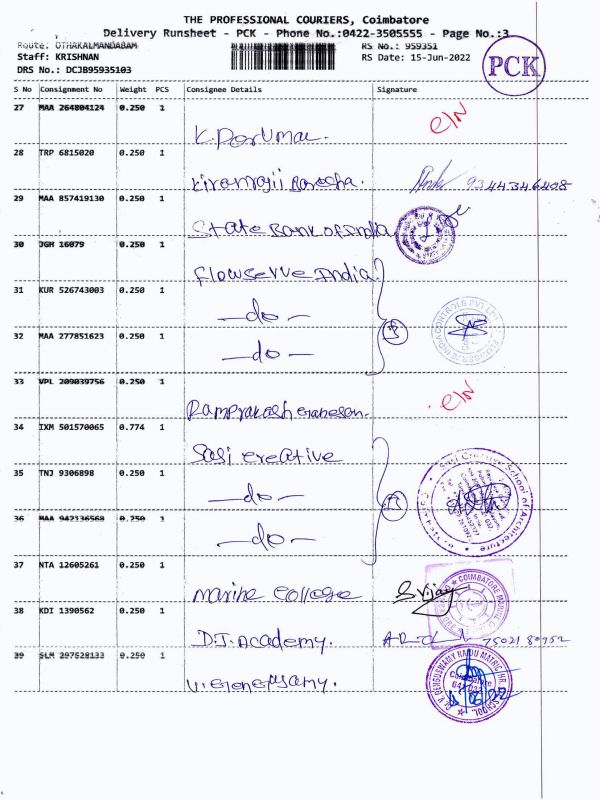 THE PROFESSIONAL COURIERS, Coimbatore
Delivery Runsheet - PCK - Phone No.:0422-3505555 - Page No.:3
Route: OTHAKALMANDABAM RS No.: 959351
Staff: KRISHNAN RS Date: 15-Jun-2022
DRS No.: DCJB95935103
PCK
S No Consignment No Weight PCS Consignee Details Signature
27 MAA 264804124 0.250 1
28 TRP 6815020 0.250 1
9344346408
29 MAA 857419130 0.250 1
State Bank of India
30 JGH 16079 0.250 1
Flowserve India
31 KUR 526743003 0.250 1
-do-
32 MAA 277851623 0.250 1
-do-
3
33 VPL 209039756 0.250 1
Ramprakash Ganesan.
34 IXM 501570065 0.774 1
Sasi Creative
35 TNJ 9306898 0.250 1
-do-
36 MAA 942136568 0.250 1
-do-
Sasi Creative School of Architecture
37 NTA 12605261 0.250 1
Marine College S.Vijay
38 KDI 1390562 0.250 1
D.J. Academy. 7502180952
39 SLM 297528133 0.250 1